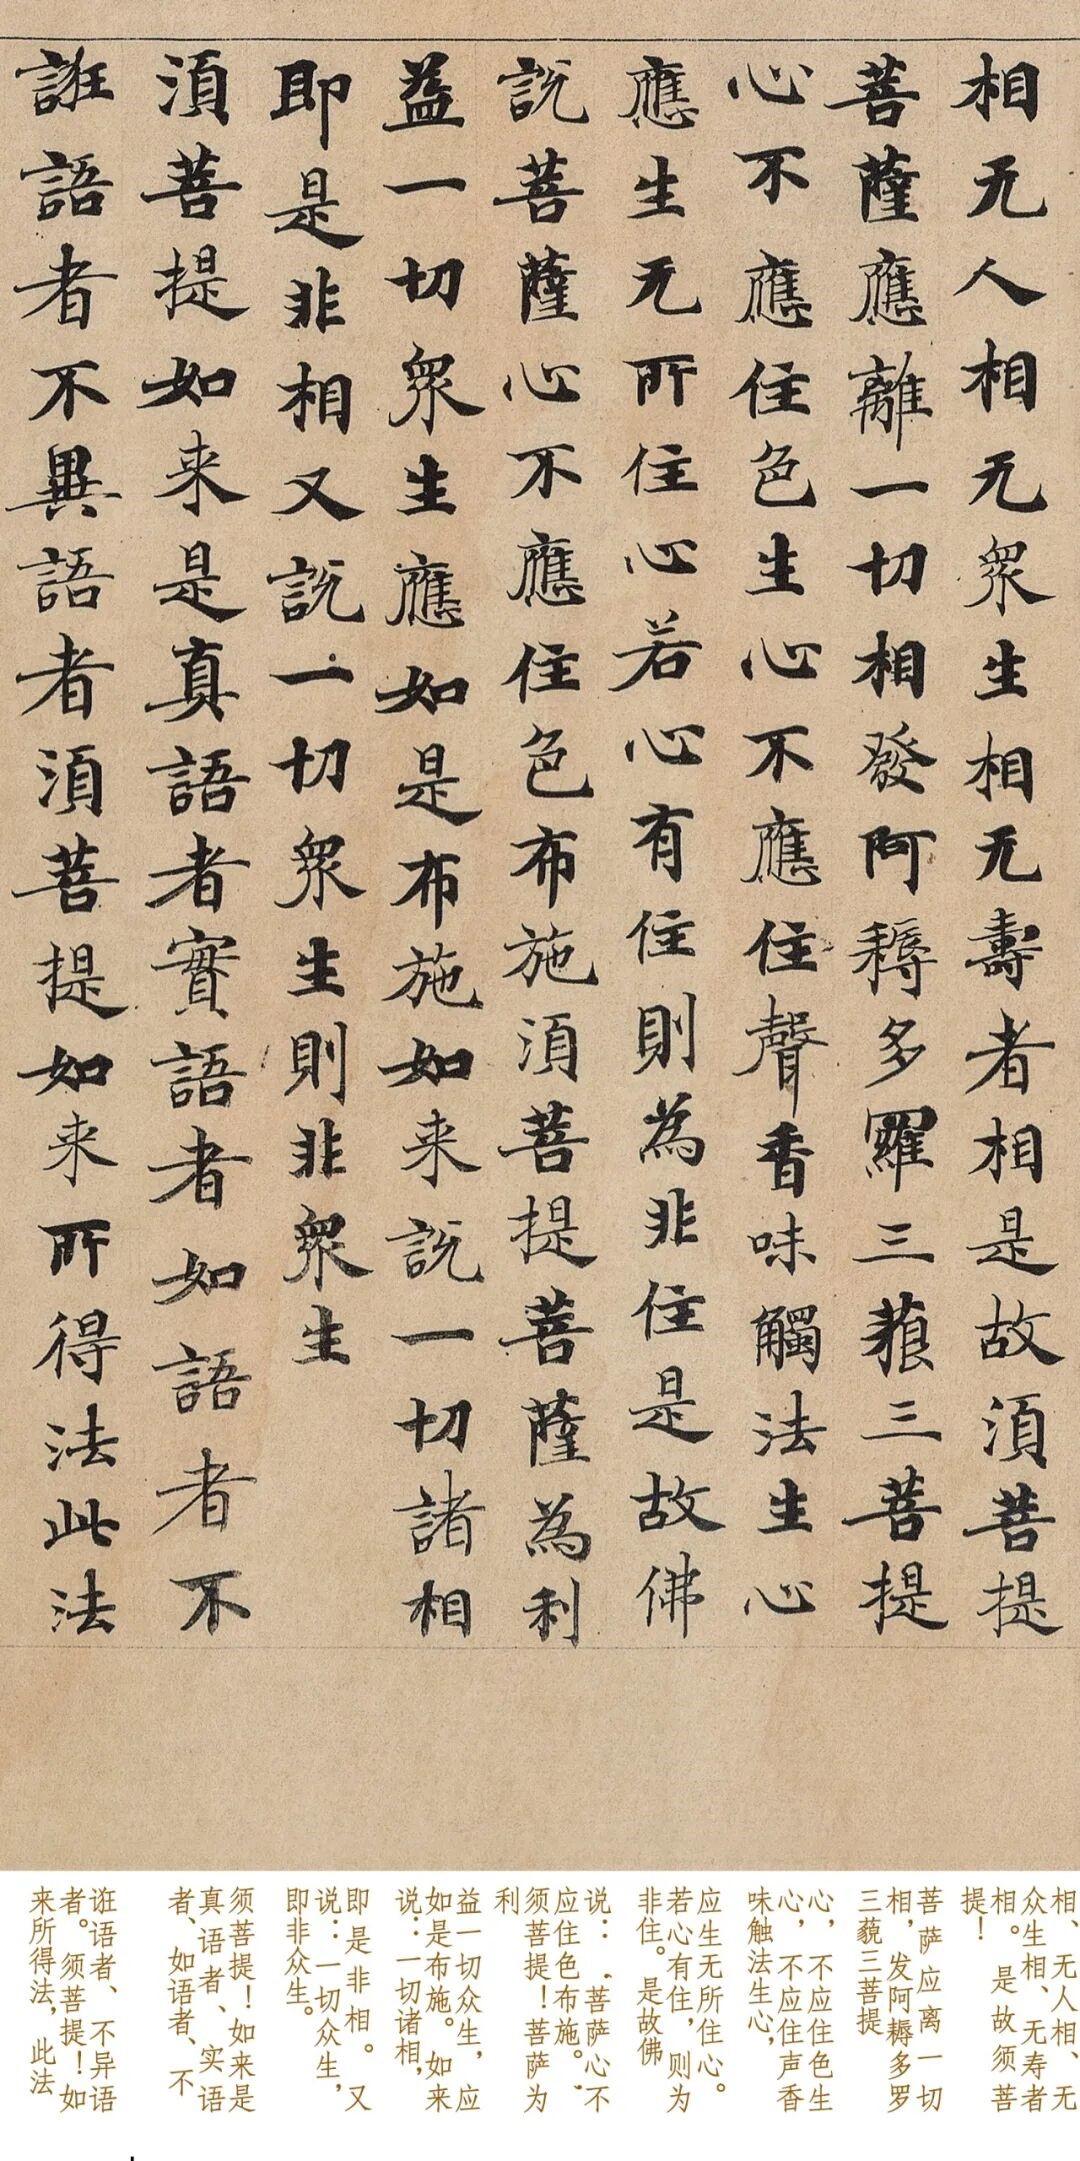 相无人相无眾生相无壽者相是故須菩提
菩薩應離一切相發阿耨多羅三藐三菩提
心不應住色生心不應住聲香味觸法生心
應生无所住心若心有住則為非住是故佛
說菩薩心不應住色布施須菩提菩薩為利
益一切眾生應如是布施如来說一切諸相
即是非相又說一切眾生則非眾生
須菩提如来是真語者實語者如語者不
誑語者不異語者須菩提如来所得法此法
相、无人相、无
众生相、无寿者
相。是故须菩
提！
菩萨应离一切
相，发阿耨多罗
三藐三菩提
心，不应住色生
心，不应住声香
味触法生心，
应生无所住心。
若心有住，则为
非住。是故佛
说：‘菩萨心不
应住色布施。’
须菩提！菩萨为
利
益一切众生，应
如是布施。如来
说：一切诸相，
即是非相。又
说：一切众生，
即非众生。
须菩提！如来是
真语者、实语
者、如语者、不
诳语者、不异语
者。须菩提！如
来所得法，此法